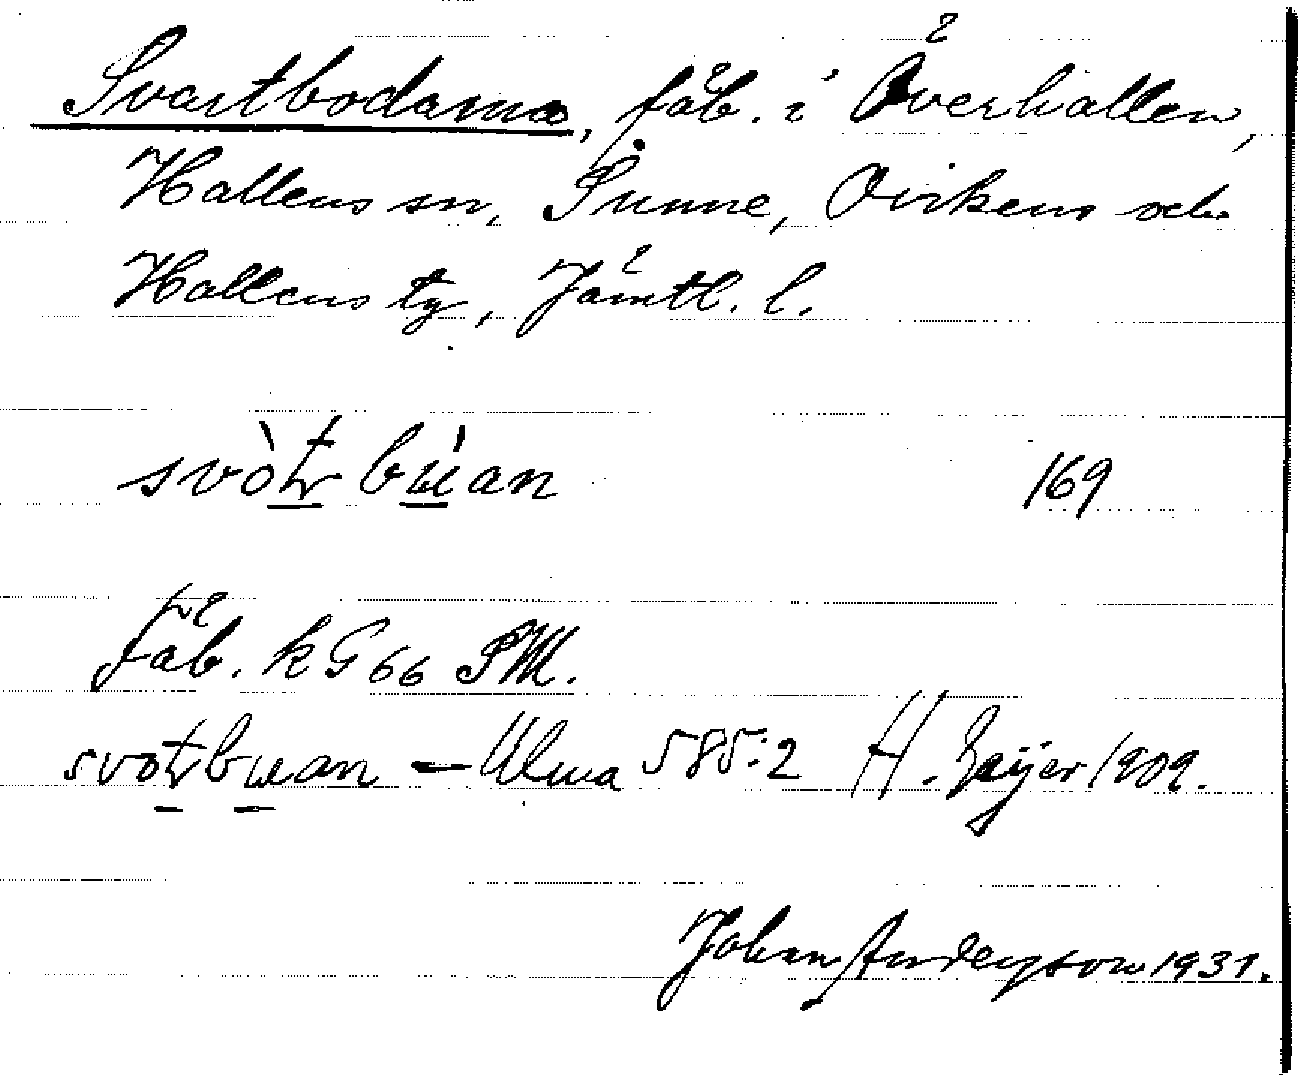 Svartbodarna, fäb. i Överhallen,
Hallens sn, Sunne, Ovikens och
Hallens tg, Jämtl. l.
svòtr bùan 169
Fäb. k G 66 SM.
svotrbuan — Ulma 585:2 H. Geijer 1909.
Johan Anderson 1931.